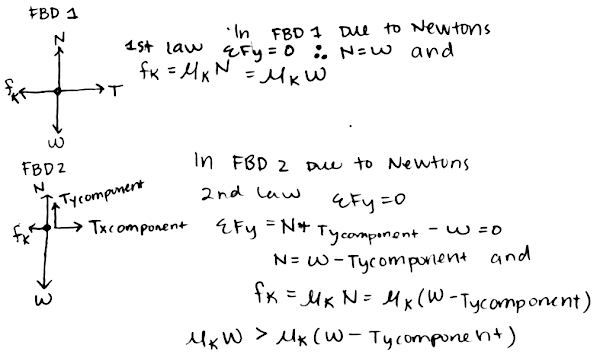 FBD 1
N
fk
T
W
In FBD 1 Due to Newtons
1st law ΣFy = 0 ∴ N = W and
fk = μkN = μkW
FBD 2
N
Tycomponent
fk
Txcomponent
W
In FBD 2 Due to Newtons
2nd law ΣFy = 0
ΣFy = N + Tycomponent - W = 0
N = W - Tycomponent and
fk = μk N = μk (W - Tycomponent)
μk W > μk (W - Tycomponent)